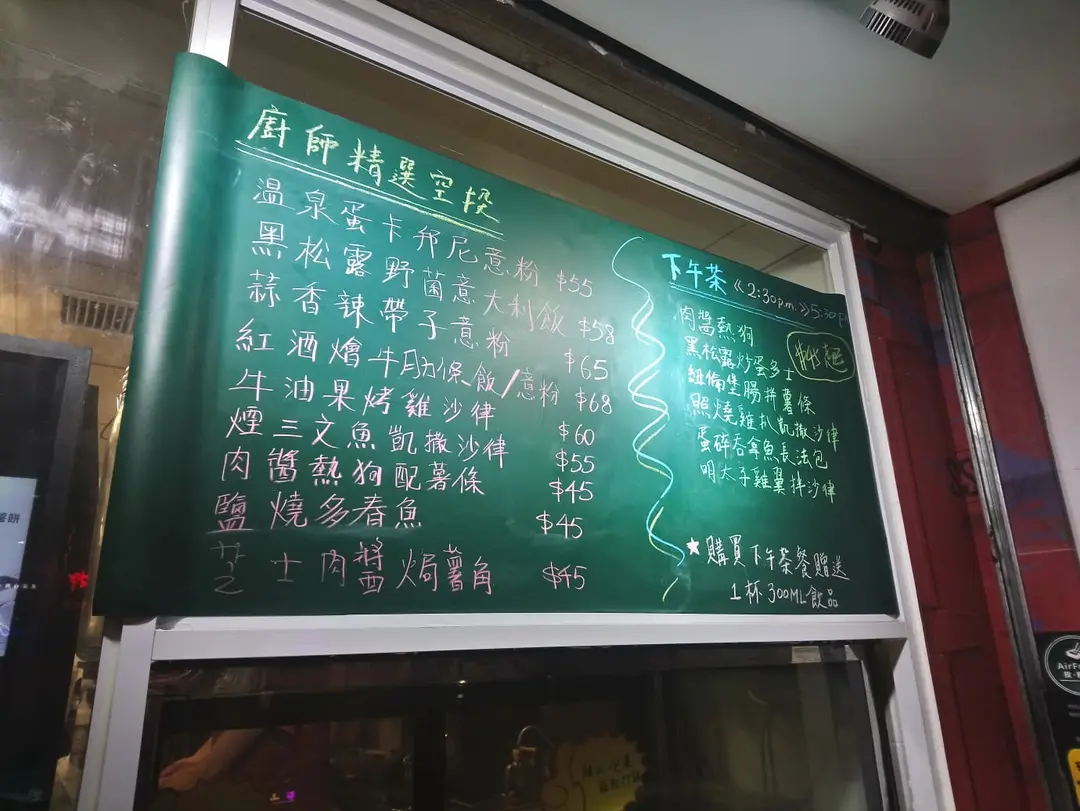 廚師精選空投
温泉蛋卡邦尼意粉 $55
黑松露野菌意大利飯 $58
蒜香辣帶子意粉 $65
紅酒燴牛肋條飯/意粉 $68
牛油果烤雞沙律 $60
煙三文魚凱撒沙律 $55
肉醬熱狗配薯條 $45
鹽燒多春魚 $45
芝士肉醬焗薯角 $45
下午茶 《2:30p.m.》5:30p
肉醬熱狗
黑松露炒蛋多士
紐倫堡腸拼薯條
照燒雞扒凱撒沙律
蛋碎吞拿魚長法包
明太子雞翼拌沙律
★購買下午茶餐贈送
1杯300ML飲品
AirF